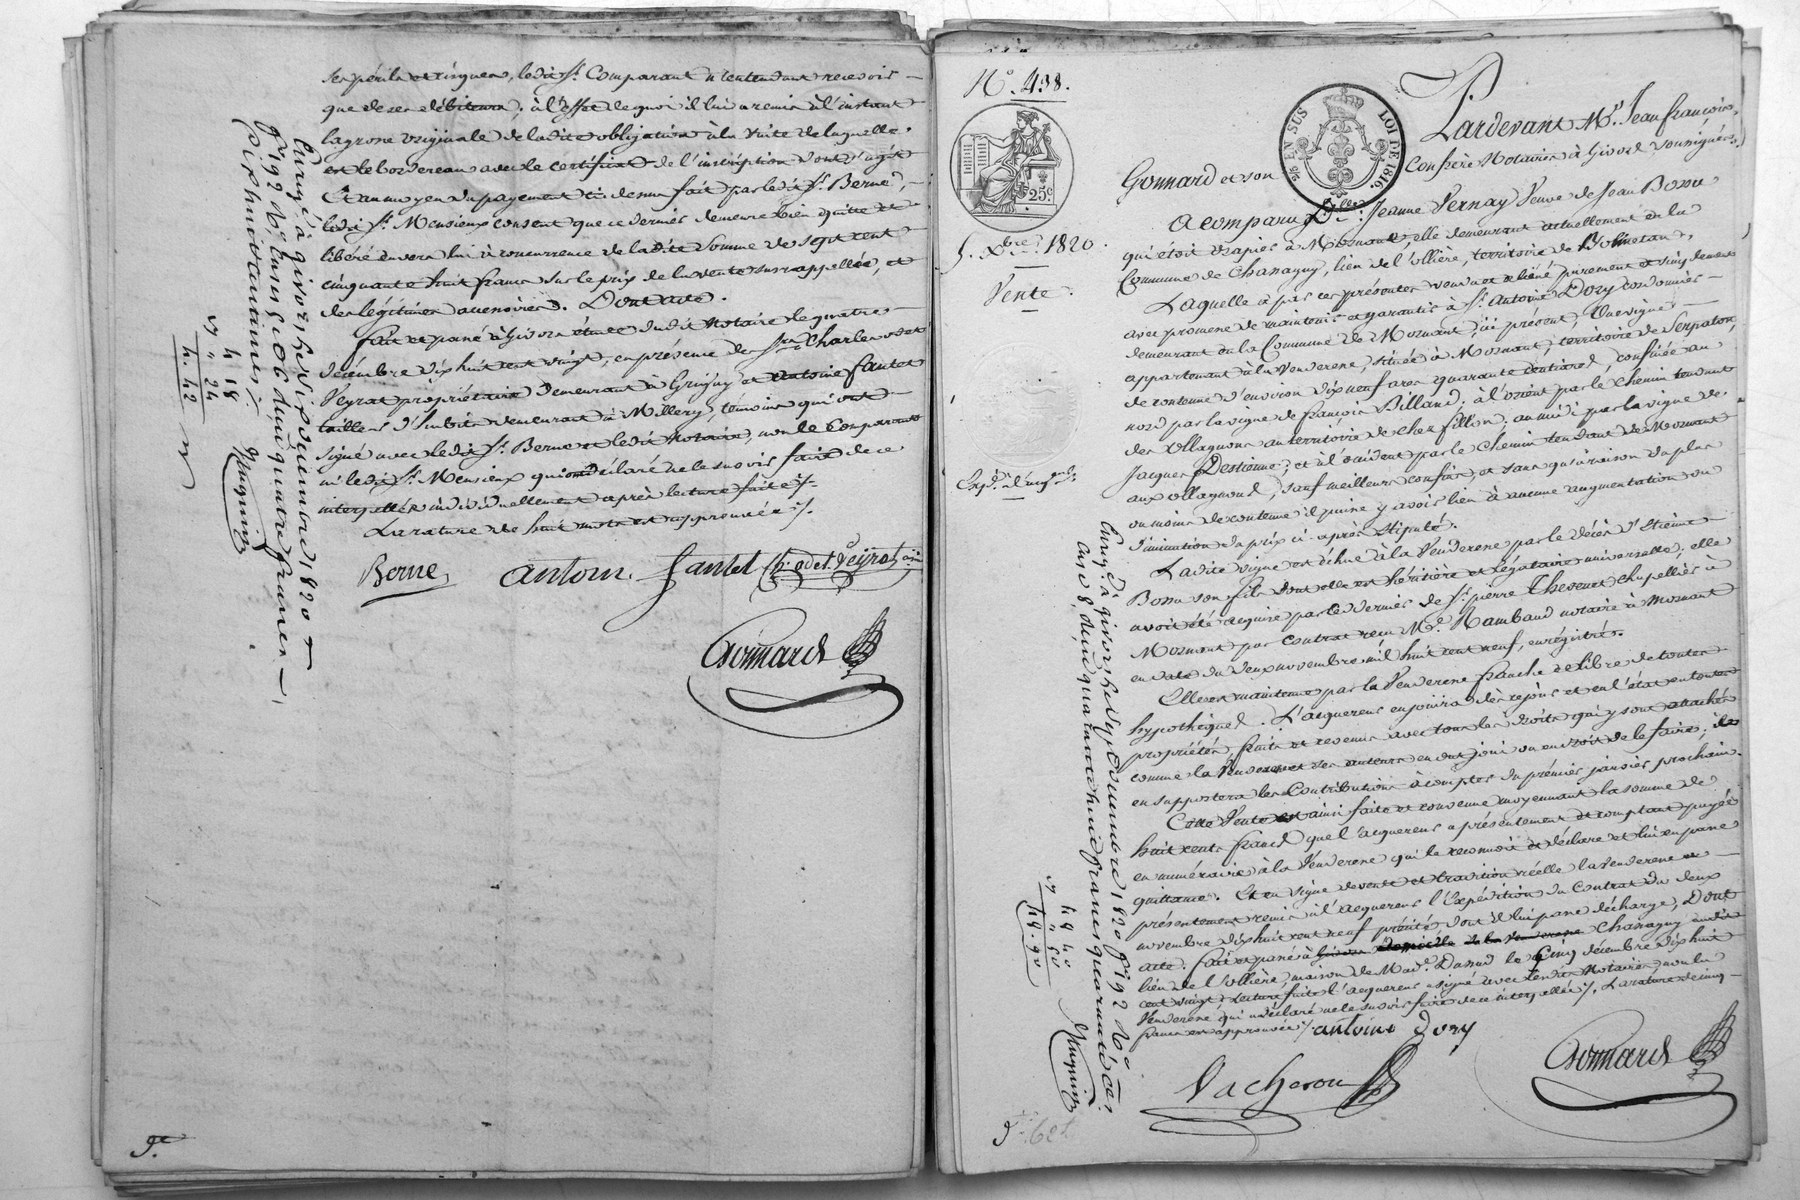 ses périls et risques, ledit Sr. Comparant n'entendant recevoir
que de ses débiteurs; à l'effet de quoi il lui a remis à l'instant
la grosse originale de ladite obligation à la suite de laquelle
est le bordereau avec le certificat de l'inscription dont s'agit
Et au moyen du payement ci-dessus fait par ledit Sr. Berne,
ledit Sr. Mensieux consent que ce dernier demeure bien quitte et
libéré envers lui à concurrence de ladite Somme de sept cent
cinquante huit francs sur le prix de la vente susrappellée, et
des légitimes accessoires. Dont acte.
fait et passé à Givors étude dudit Notaire le quatre
décembre dix huit cent vingt, en présence de Srs. Charles odet
Peyrat propriétaire demeurant à Grigny et Antoine fantet
tailleur d'habits demeurant à Millery, témoins qui ont
signé avec ledit Sr. Berne et ledit Notaire, non le Comparant
ni ledit Sr. Mensieux qui ont déclaré ne le savoir faire de ce
interpellés individuellement après lecture faite ./.
La rature de huit mots est approuvée ./.
Berne antoin fantet Ch. odet Peyrat
Gonnard
Enregé. à givors, le six décembre 1820
fo. 192
dix huit centimes ./. Nuguin
4 18
" 24
4. 42
No. 438.
25c.
26 EN SUS
LOI DE 1816.
5. Xbre. 1820.
Vente.
Pardevant Me. Jean françois
Gonnard et son Confrère Notaires à Givors soussignés
a comparu Jeanne Vernay Veuve de Jean Bossu
qui étoit drapier à Mornant, elle demeurant actuellement en la
Commune de Chassagny, lieu de l'ollière, territoire de
Laquelle a par ces présentes vendu et aliéné purement et simplement
avec promesse de maintenir et garantir à Sr. Antoine Dory cordonnier
demeurant en la Commune de Mornant ici présent, Une vigne
appartenant à la Venderesse, située à Mornant, territoire de Serpaton,
de contenue d'environ dix neuf ares quarante centiares, confinée au
nord par la vigne de francois Billand; à l'orient par le Chemin tendant
des ollagnons au territoire de Chez fillon; au midi par la vigne de
Jacques Destienne; et à l'occident par le Chemin tendant de Mornant
aux ollagnons, sauf meilleurs confins, et sans qu'à raison du plus
ou moins de contenue il puisse y avoir lieu à aucune augmentation ou
diminution du prix ci-après stipulé.
La dite vigne est échue à la Venderesse par le décès d'Etienne
Bossu son fils dont elle est héritière et légataire universelle; elle
avoit été acquise par ce dernier de Sr. pierre Thevenet chapellier à
Mornant par contrat reçu Me. Rambaud notaire à Mornant
en date du deux novembre mil huit cent neuf, enregistré.
Elle est maintenue par la Venderesse franche et libre de toutes
hypothèques. L'acquereur en jouira dès ce jour et en l'état en toutes
propriétés, fruits et revenus avec tous les droits qui y sont attachés
comme la Venderesse et ses auteurs en ont joui ou eu droit de le faire; il
en supportera les Contributions à compter du premier janvier prochain.
Cette Vente est ainsi faite et convenue moyennant la somme de
huit cents francs que l'acquereur a présentement et comptant payés
en numéraire à la Venderesse qui le reconnoit et déclare et lui en passe
quittance. Et en signe de vente et tradition réelle la Venderesse a
présentement remis à l'acquereur l'Expédition du Contrat du deux
novembre dix huit cent neuf précité dont il lui passe décharge, Dont
acte. fait et passé à Chassagny audit
lieu de l'ollière, maison de Made. Danud le Cinq décembre dix huit
cent vingt, Lecture faite l'acquereur a signé avec lesdits Notaires, non la
Venderesse qui a déclaré ne le savoir faire de ce interpellée ./. La rature de cinq
francs est approuvée ./. antoine Dory
Vacheron Gonnard
Enregé. à givors, le sept décembre 1820 fo. 192 Vo.
case 8, reçu quarante huit francs quarante ces.
44 40
4 50
48. 90
Nuguin